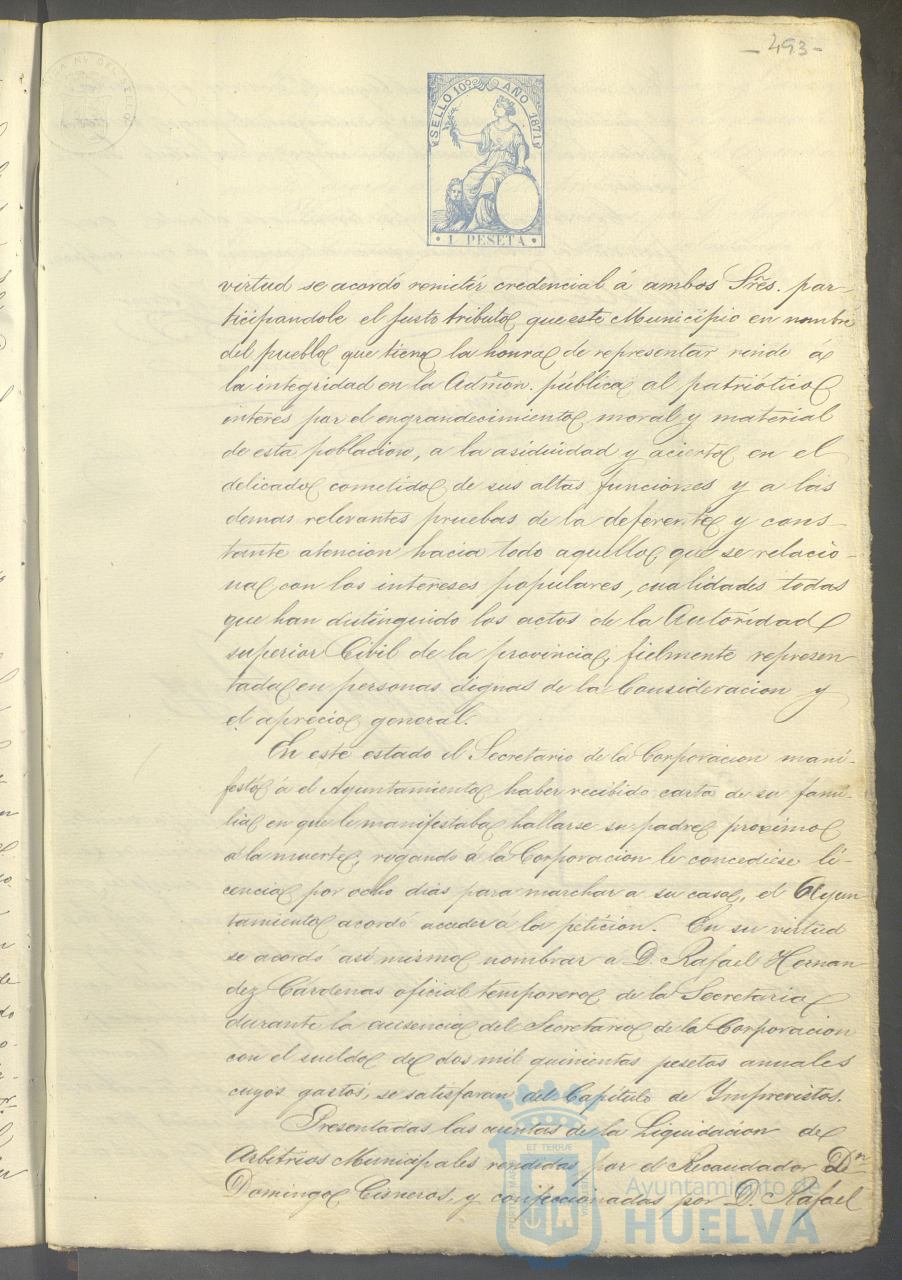 - 493 -
SELLO 10º AÑO 1871
· 1 PESETA ·
virtud se acordó remitir credencial á ambos Sres. par-
ticipandole el justo tributo que este Municipio en nombre
del pueblo que tiene la honra de representar rinde á
la integridad en la Admon. pública al patriótico
interés por el engrandecimiento moral y material
de esta poblacion, a la asiduidad y acierto en el
delicado cometido de sus altas funciones y a las
demas relevantes pruebas de la deferente y cons-
tante atencion hacia todo aquello, que se relacio-
na con los intereses populares, cualidades todas
que han distinguido los actos de la Autoridad
superior Civil de la provincia, fielmente represen
tada en personas dignas de la Consideracion y
el aprecio general.
En este estado el Secretario de la Corporacion mani-
festó á el Ayuntamiento haber recibido carta de su fami-
lia en que le manifestaba hallarse su padre proximo
á la muerte, rogando á la Corporacion le concediese li-
cencia por ocho dias para marchar a su casa, el Ayun
tamiento acordó acceder á la peticion. En su virtud
se acordó asi mismo nombrar a D. Rafael Hernan
dez Cárdenas oficial temporero de la Secretaria
durante la ausencia del Secretario de la Corporacion
con el sueldo de dos mil quinientas pesetas anuales
cuyos gastos, se satisfaran del Capitulo de Ymprevistos.
Presentadas las cuentas de la Liquidacion de
Arbitrios Municipales rendidas por el Recaudador Dn
Domingo Cisneros, y confeccionadas por D. Rafael
Ayuntamiento de
HUELVA